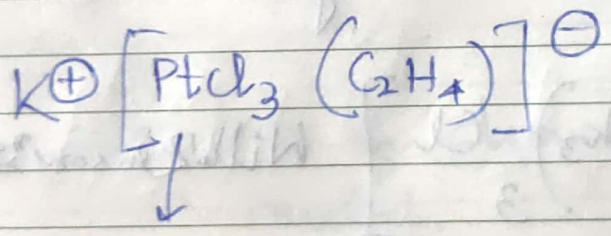 K⊕ [PtCl₃ (C₂H₄)]⊖
↓